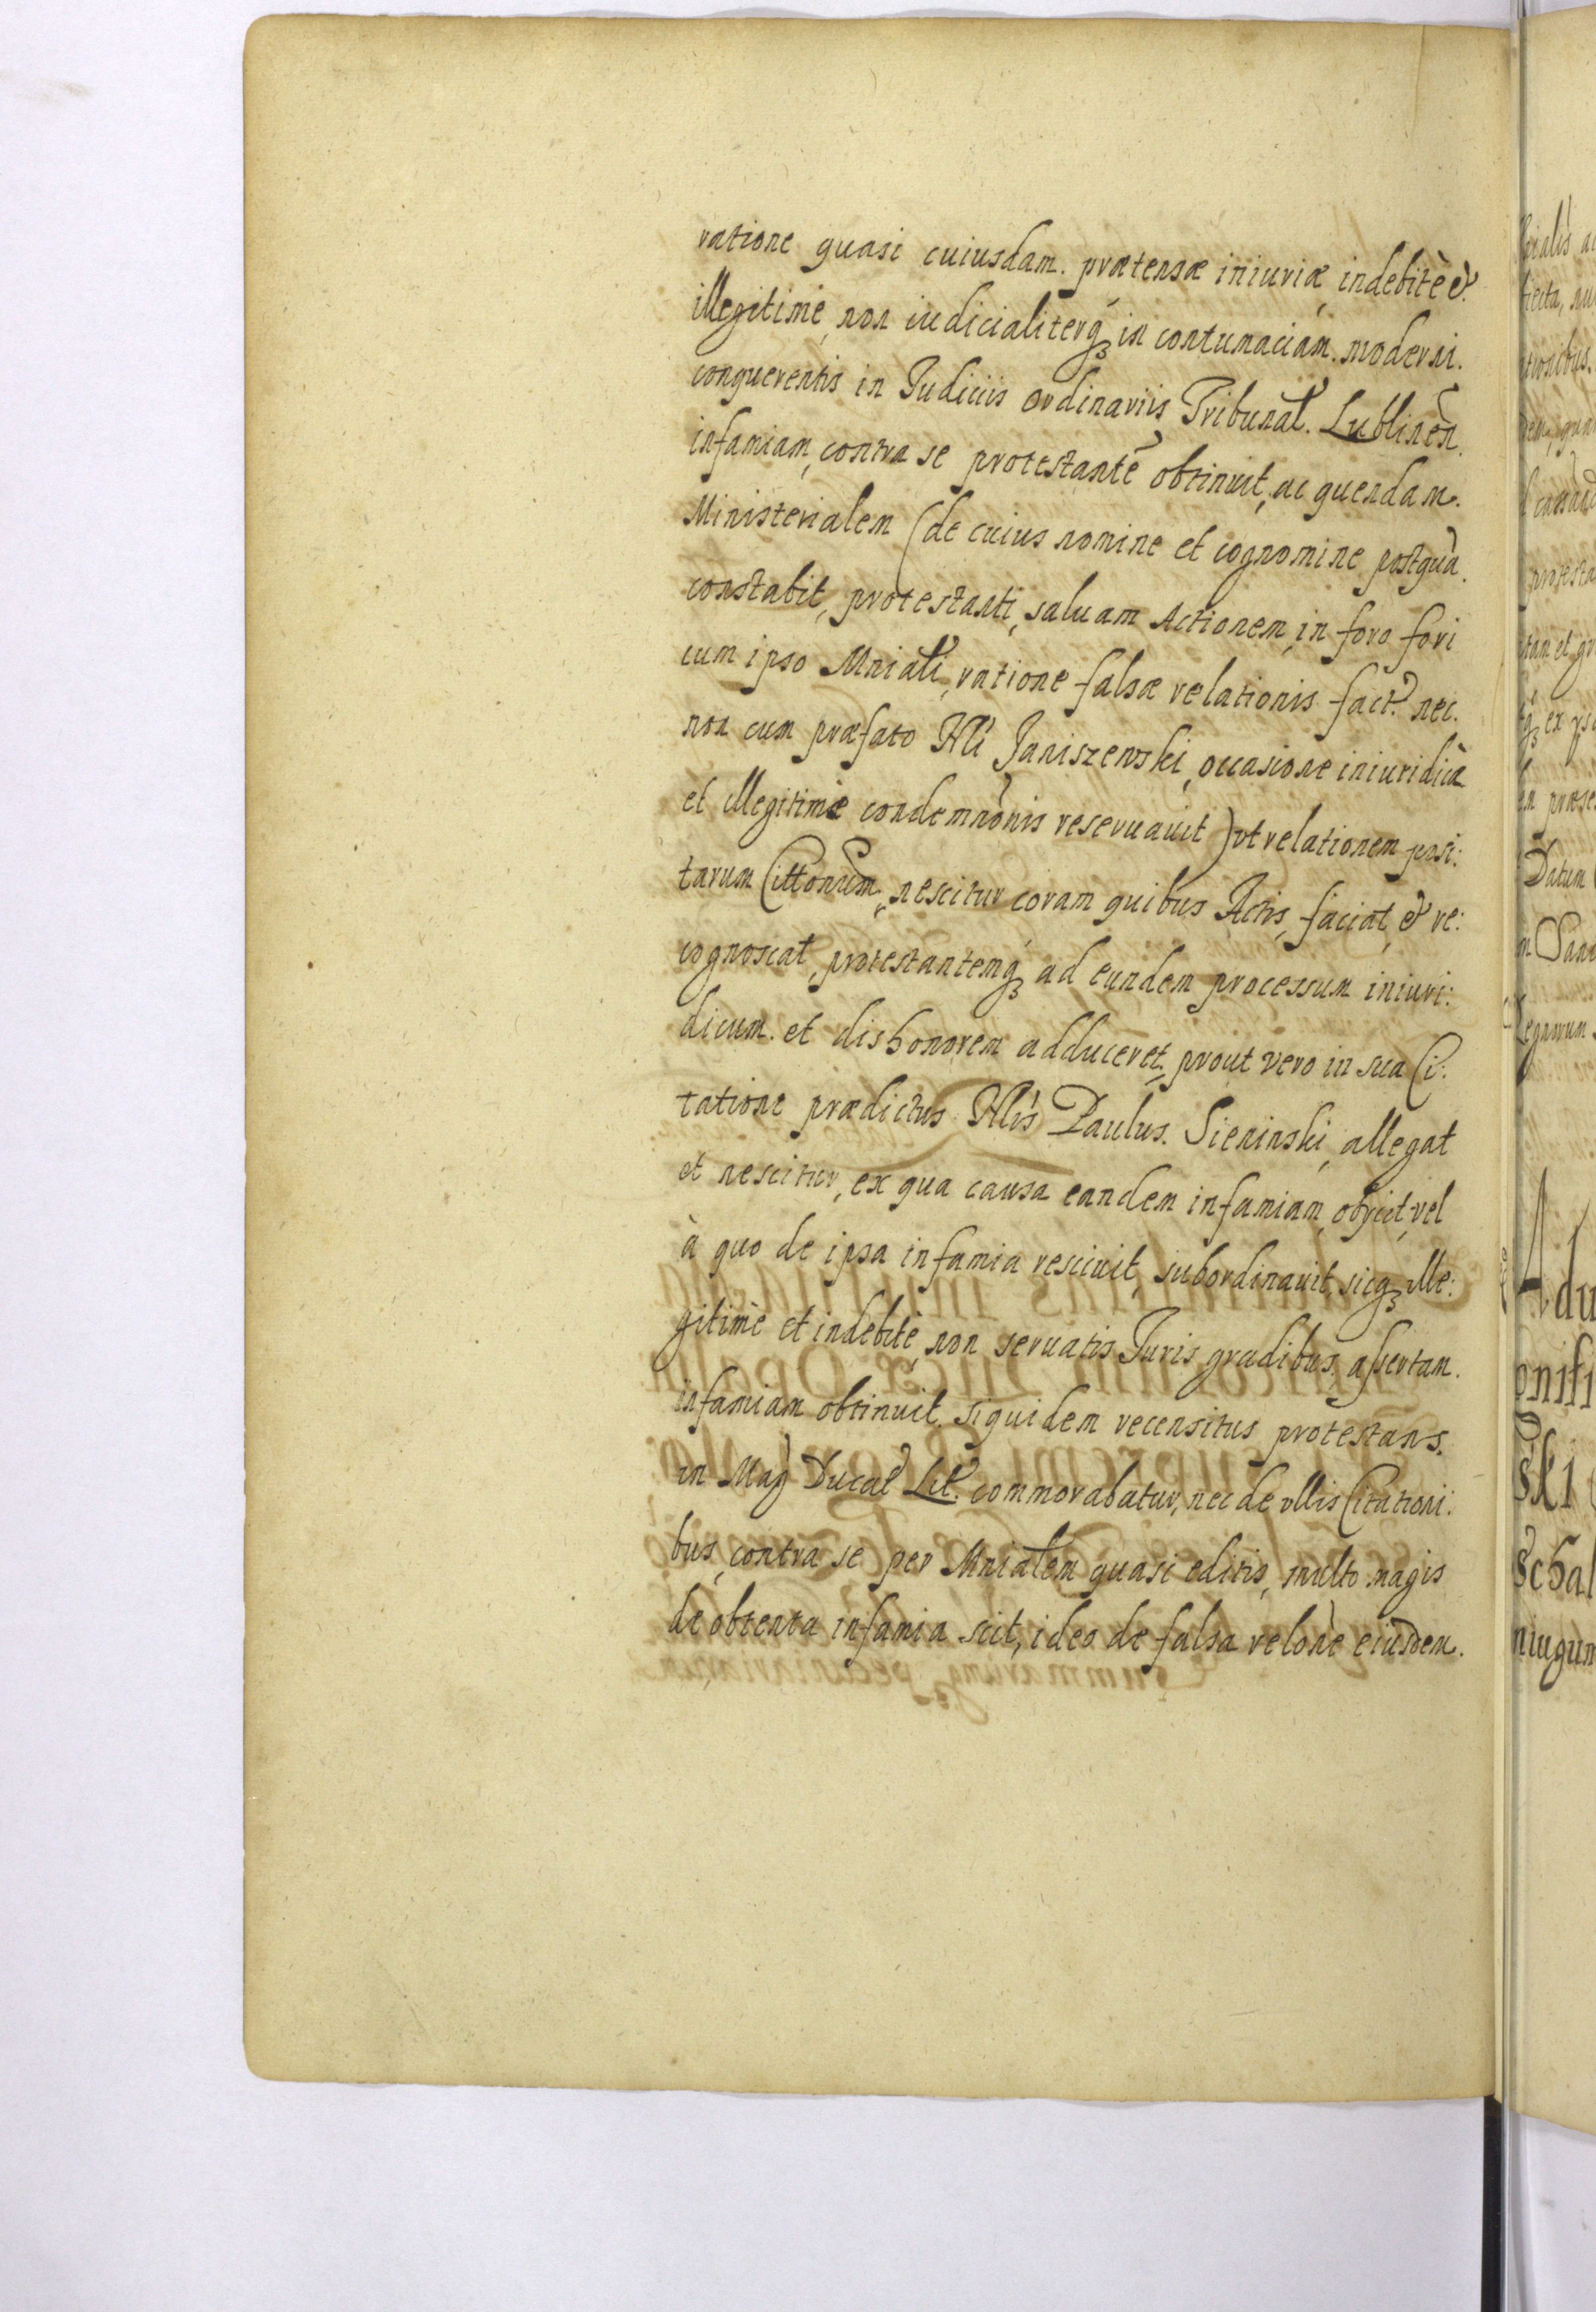 ratione quasi cuiusdam. prætensæ iniuriæ, indebitè &
illegitimè, non iudicialiterq́ꝫ in contumaciam. moderni.
conquerentis in Judiciis ordinariis Tribunal̃. Lublineñ.
infamiam, contra se protestantẽ obtinuit, ac quendam.
Ministerialem (de cuius nomine et cognomine postquà.
constabit, protestanti, saluam Actionem, in foro fori
cum ipso Mniali, ratione falsæ relationis fact̃. nec.
non cum præfato Nli Janiszewski, occasione iniuridicæ
et illegitimæ condemnònis reseruauit) vt relationem posi:
tarum Cittonum, nescitur coram quibus Actis, faciat, & re:
cognoscat, protestantemq́ꝫ ad eundem processum iniuri:
dicum. et dishonorem adduceret, prout vero in sua Ci:
tatione prædictus Nlis Paulus. Sieninski, allegat
et nescitur, ex qua causa eandem infamiam, obijcit, vel
à quo de ipsa infamia resciuit, subordinauit, sicqꝫ ille:
gitimè et indebitè, non seruatis Juris gradibus, assertam.
infamiam obtinuit. siquidem recensitus protestans.
in Mag̃ Ducat̃ Lit̃. commorabatur, nec de vllis Citationi:
bus, contra se per Mnialem quasi editis, multo magis
de obtenta infamia scit, ideo de falsa relone eiusdem.